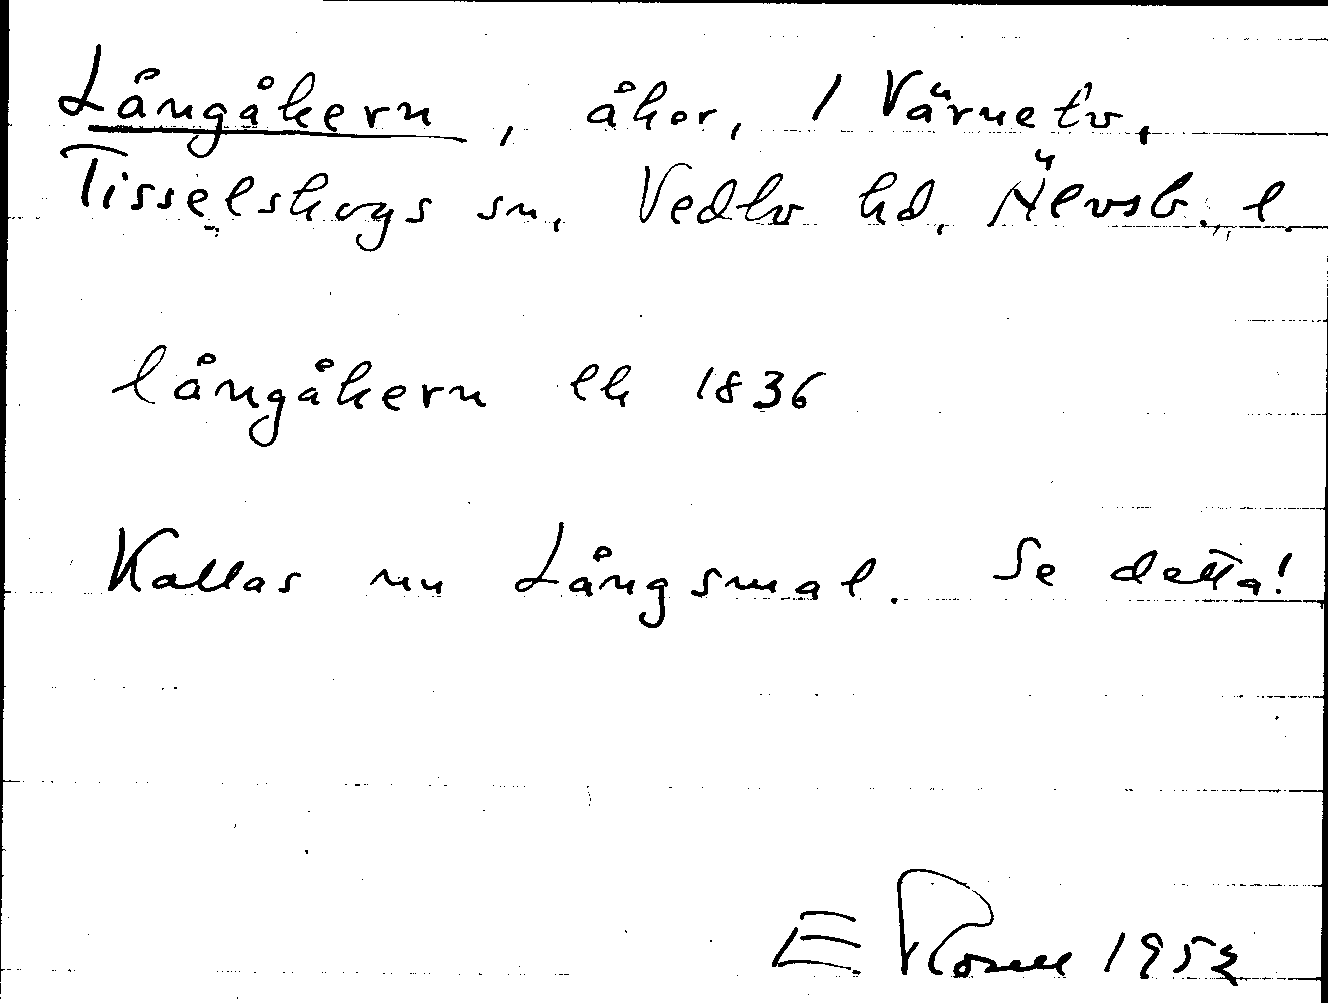 Långåkern, åker, 1 Värnetv,
Tisselskogs sn, Vedbo hd, Älvsb. l.
långåkern lk 1836
Kallas nu Långsmal. Se detta!
E Rosell 1952